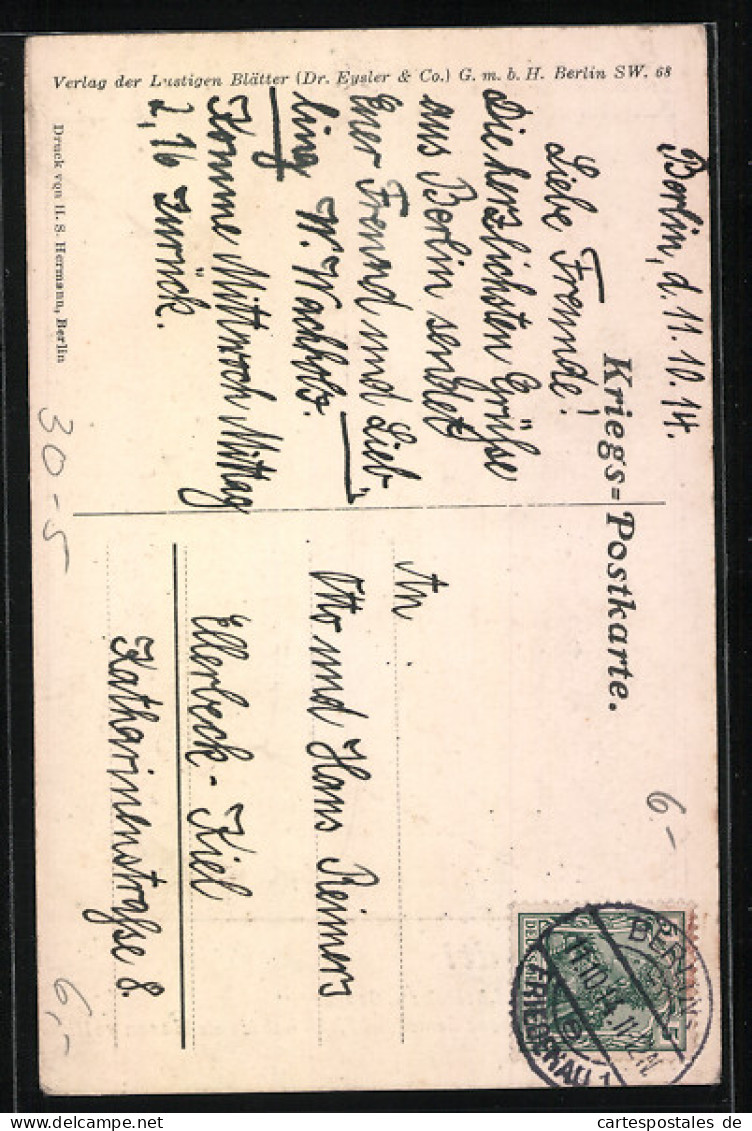 Verlag der Lustigen Blätter (Dr. Eysler & Co.) G. m. b. H. Berlin SW. 68
Kriegs=Postkarte.
Berlin, d. 11. 10. 14.
Liebe Freunde!
Die herzlichsten Grüße
aus Berlin sendet
Euer Freund und Lieb-
ling W. Wachholz.
Komme Mittwoch Mittag
2,16 zurück.
Druck von H. S. Hermann, Berlin
30-5
An
Otto und Hans Reimers
Ellerbeck-Kiel
Katharinenstraße 8.
6.-
6,-
BERLIN
11.10.14. 11-12 N
FRIEDENAU 1
e
5
cartespostales de